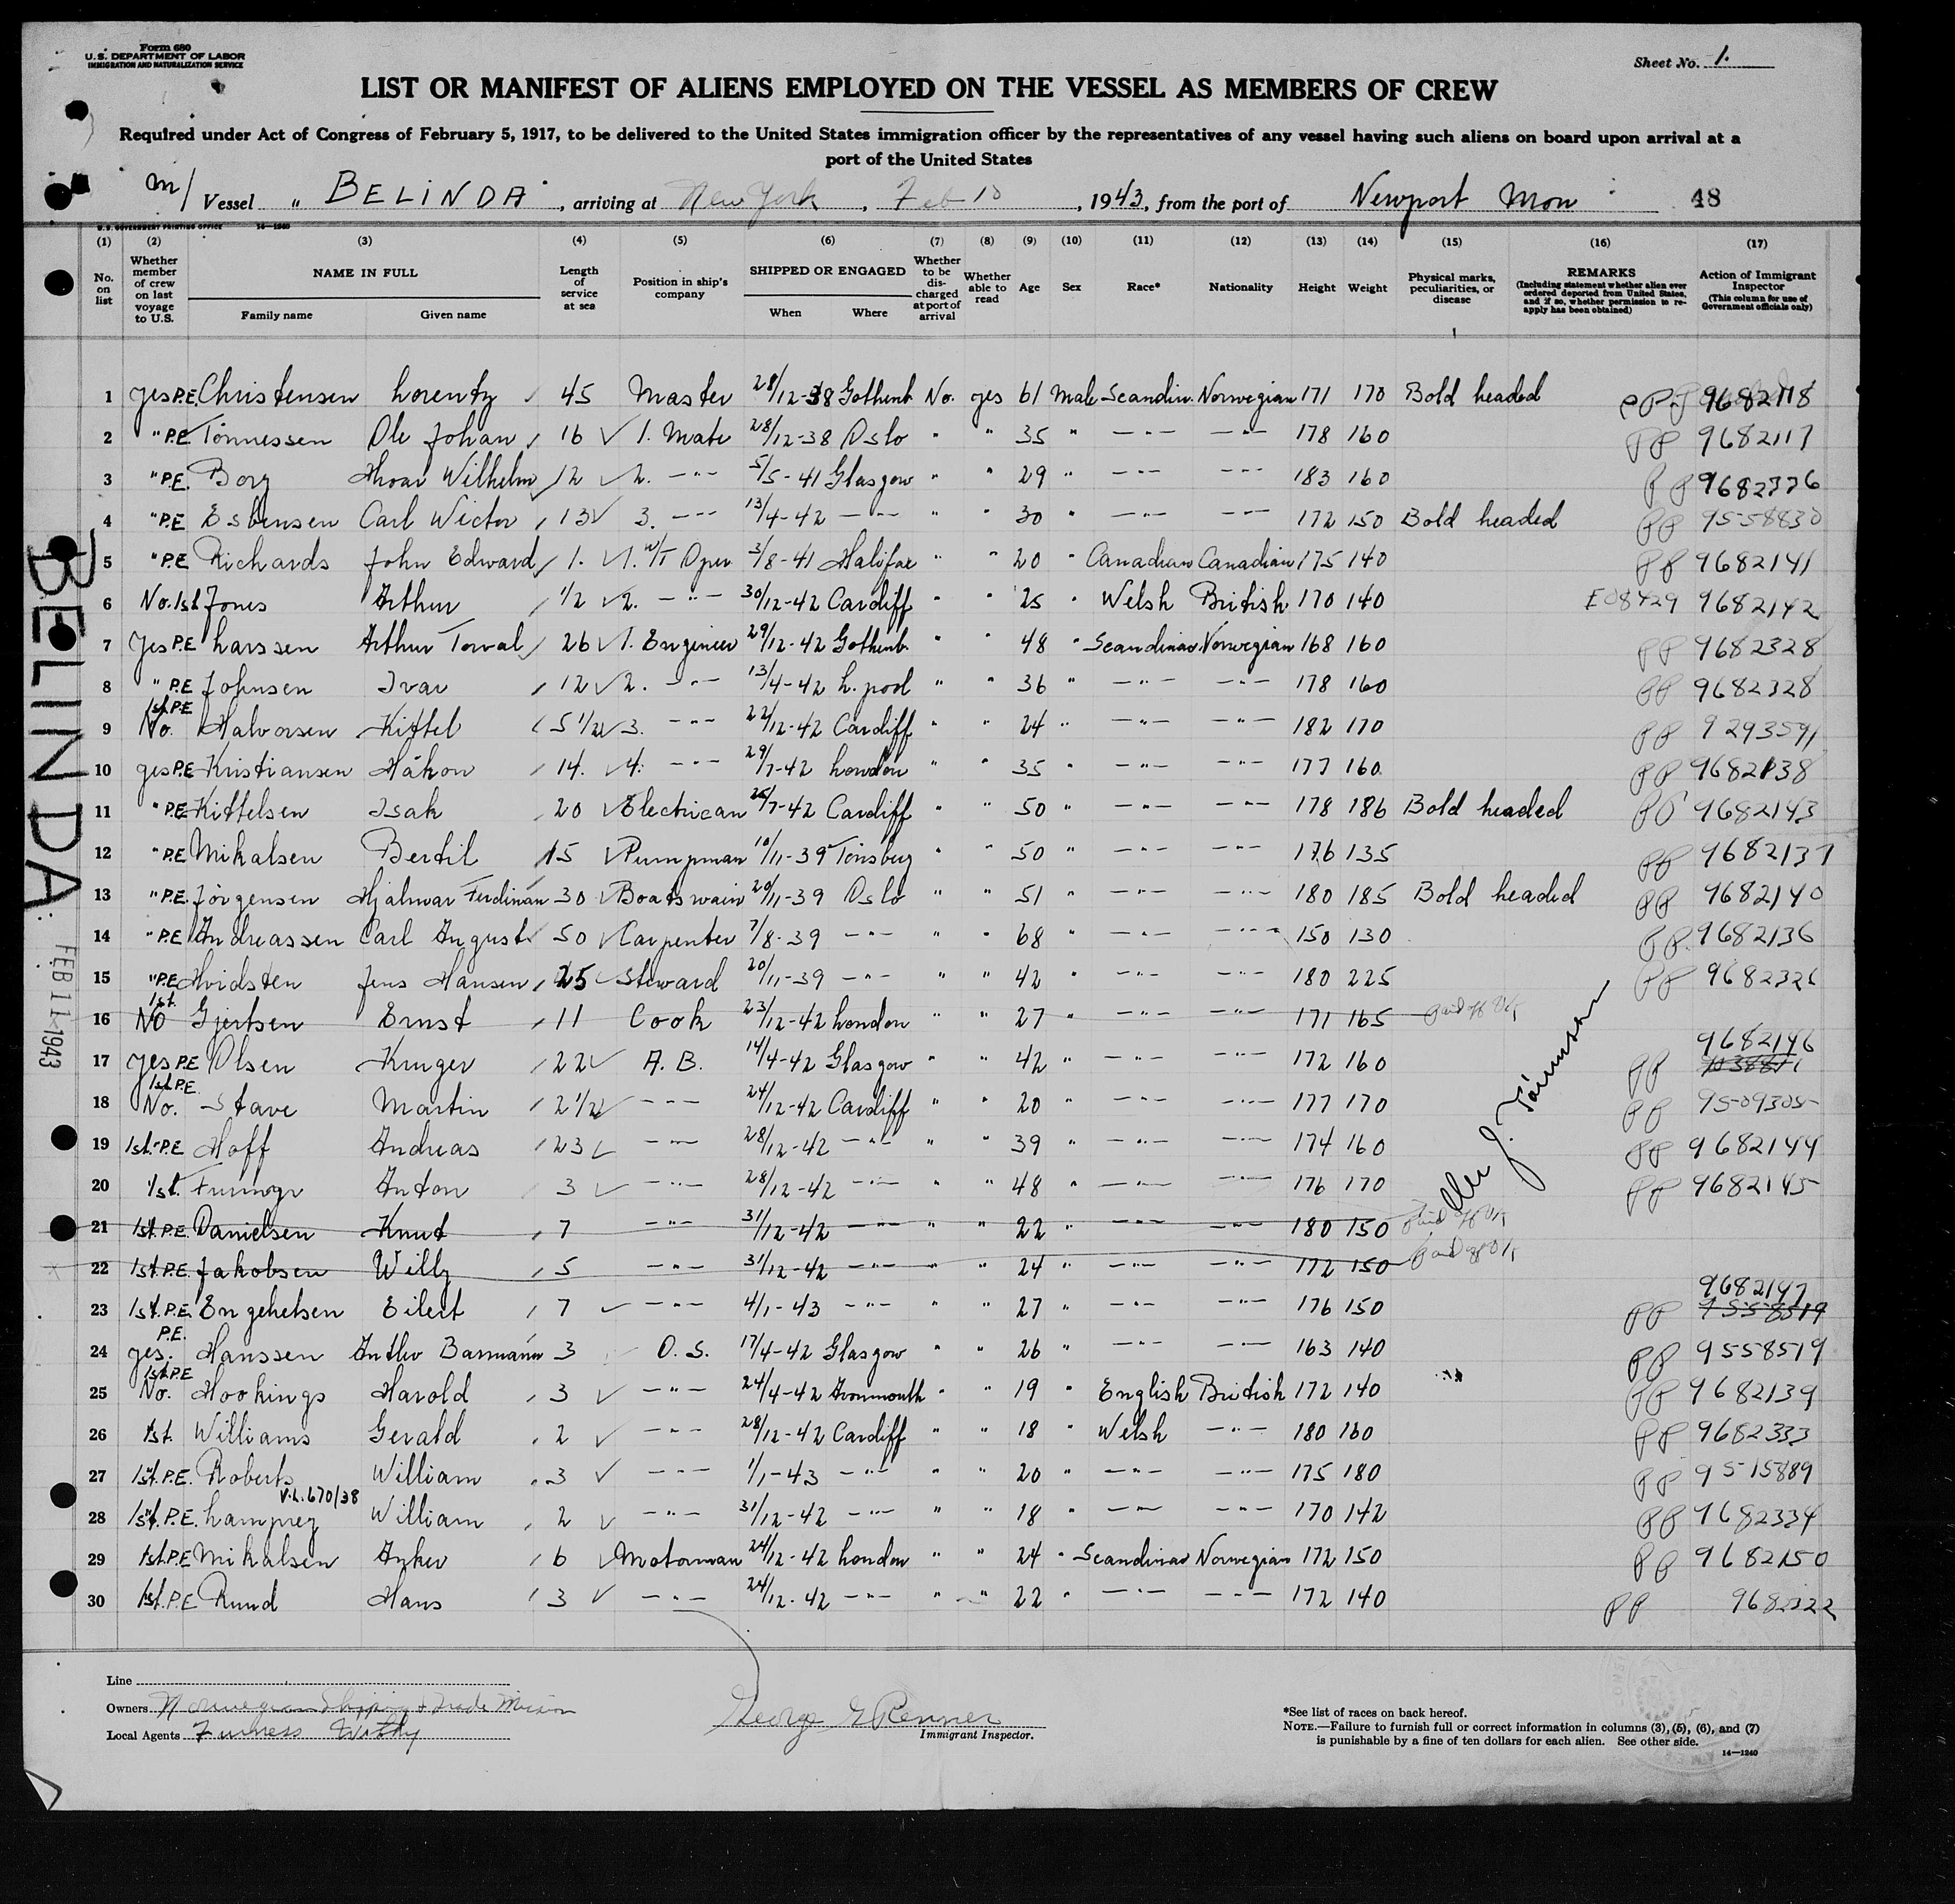 Form 680
U.S. DEPARTMENT OF LABOR
IMMIGRATION AND NATURALIZATION SERVICE
Sheet No. 1.
LIST OR MANIFEST OF ALIENS EMPLOYED ON THE VESSEL AS MEMBERS OF CREW
Required under Act of Congress of February 5, 1917, to be delivered to the United States immigration officer by the representatives of any vessel having such aliens on board upon arrival at a
port of the United States
M/ Vessel " BELINDA", arriving at New York, Feb 10, 1943, from the port of Newport Mon 48
U.S. GOVERNMENT PRINTING OFFICE 14—1240
(1) (2) (3) (4) (5) (6) (7) (8) (9) (10) (11) (12) (13) (14) (15) (16) (17)
No. on list
Whether member of crew on last voyage to U.S.
NAME IN FULL
Family name Given name
Length of service at sea
Position in ship's company
SHIPPED OR ENGAGED
When Where
Whether to be discharged at port of arrival
Whether able to read
Age Sex Race* Nationality Height Weight
Physical marks, peculiarities, or disease
REMARKS
(Including statement whether alien ever ordered deported from United States, and if so, whether permission to reapply has been obtained)
Action of Immigrant Inspector
(This column for use of Government officials only)
1 yes P.E. Christensen Lorentz 45 Master 28/12-38 Gothenb No. yes 61 Male Scandin. Norwegian 171 170 Bold headed 9682118
2 " P.E. Tönnessen Ole Johan 16 ✓ 1. Mate 28/12-38 Oslo " " 35 " —"— —"— 178 160 PP 9682117
3 " P.E. Borg Hroar Wilhelm 12 ✓ 2. —"— 5/5-41 Glasgow " " 29 " —"— —"— 183 160 PP 9682326
4 " P.E Esbensen Carl Victor 13 ✓ 3. —"— 13/4-42 —"— " " 30 " —"— —"— 172 150 Bold headed PP 9558830
5 " P.E Richards John Edward 1. ✓ 1. W/T Oper 3/8-41 Halifax " " 20 " Canadian Canadian 175 140 PP 9682141
6 No. 1st Jones Arthur 1/2 ✓ 2. —"— 30/12-42 Cardiff " " 25 " Welsh British 170 140 E08429 9682142
7 Yes P.E Larssen Arthur Torval 26 ✓ 1. Engineer 29/12-42 Gothenb. " " 48 " Scandinav. Norwegian 168 160 PP 9682328
8 " P.E Johnsen Ivar 12 ✓ 2. —"— 13/4-42 L.pool " " 36 " —"— —"— 178 160 PP 9682328
9 1st P.E No. Halvorsen Kittel 5 1/2 ✓ 3. —"— 22/12-42 Cardiff " " 24 " —"— —"— 182 170 PP 9293591
10 yes P.E Kristiansen Håkon 14. ✓ 4. —"— 29/7-42 London " " 35 " —"— —"— 177 160 PP 9682138
11 " P.E Kittelsen Isak 20 ✓ Electrican 26/7-42 Cardiff " " 50 " —"— —"— 178 186 Bold headed PP 9682143
12 " P.E Mikalsen Bertil 15 ✓ Pumpman 10/11-39 Tönsberg " " 50 " —"— —"— 176 135 PP 9682137
13 " P.E. Jörgensen Hjalmar Ferdinan 30 ✓ Boatswain 20/11-39 Oslo " " 51 " —"— —"— 180 185 Bold headed PP 9682140
14 " P.E Andreassen Carl August 50 ✓ Carpenter 7/8-39 —"— " " 68 " —"— —"— 150 130 PP. 9682136
15 " P.E Hvidsten Jens Hansen 25 ✓ Steward 20/11-39 —"— " " 42 " —"— —"— 180 225 PP 9682326
16 1st. No Gjertsen Ernst 11 Cook 23/12-42 London " " 27 " —"— —"— 171 165 Paid off U/K
17 yes P.E Olsen Kruger 22 ✓ A.B. 14/4-42 Glasgow " " 42 " —"— —"— 172 160 PP 9682146
18 1st P.E. No. Stave Martin 2 1/2 ✓ —"— 24/12-42 Cardiff " " 20 " —"— —"— 177 170 PP 9509305
19 1st. P.E Hoff Andreas 23 ✓ —"— 28/12-42 —"— " " 39 " —"— —"— 174 160 PP 9682144
20 1st. Anton 3 ✓ —"— 28/12-42 —"— " " 48 " —"— —"— 176 170 PP 9682145
21 1st. P.E. Danielsen Knut 7 —"— 31/12-42 —"— " " 22 " —"— —"— 180 150 Paid off U/K
22 1st. P.E. Jakobsen Willy 5 —"— 31/12-42 —"— " " 24 " —"— —"— 172 150 Paid off U/K
23 1st. P.E. Engehelsen Eilert 7 ✓ —"— 4/1-43 —"— " " 27 " —"— —"— 176 150 PP 9682147 9558519
24 P.E. yes. Hanssen 3 O.S. 17/4-42 Glasgow " " 26 " —"— —"— 163 140 PP 9558519
25 1st P.E No. Hookings Harold 3 ✓ —"— 24/4-42 Avonmouth " " 19 " English British 172 140 PP 9682139
26 1st. Williams Gerald 2 ✓ —"— 28/12-42 Cardiff " " 18 " Welsh —"— 180 160 PP 9682333
27 1st. P.E. Roberts William 3 ✓ —"— 1/1-43 —"— " " 20 " —"— —"— 175 180 PP 9515889
V.L. 670/38
28 1st. P.E. Lamprey William 2 ✓ —"— 31/12-42 —"— " " 18 " —"— —"— 170 142 PP 9682334
29 1st. P.E Mikalsen Anker 6 ✓ Motorman 24/12-42 London " " 24 " Scandinav Norwegian 172 150 PP 9682150
30 1st. P.E Ruud Hans 3 ✓ —"— 24/12-42 —"— " " 22 " —"— —"— 172 140 PP 9682322
BELINDA
FEB 11 1943
Line
Owners Norwegian Shipping & Trade Mission
Local Agents Furness Withy
George E Renner
Immigrant Inspector.
*See list of races on back hereof.
NOTE.—Failure to furnish full or correct information in columns (3), (5), (6), and (7)
is punishable by a fine of ten dollars for each alien. See other side.
14—1240